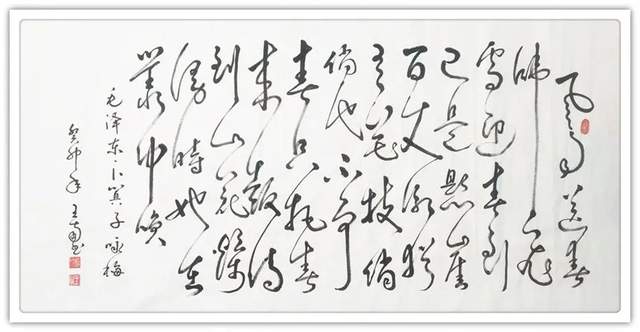 風雨送春
歸飛
雪迎春到
已是懸崖
百丈冰猶
有花枝俏
俏也不爭
春只把春
来報待
到山花爛
漫時她在
叢中咲
毛泽东·卜算子咏梅
癸卯年 王